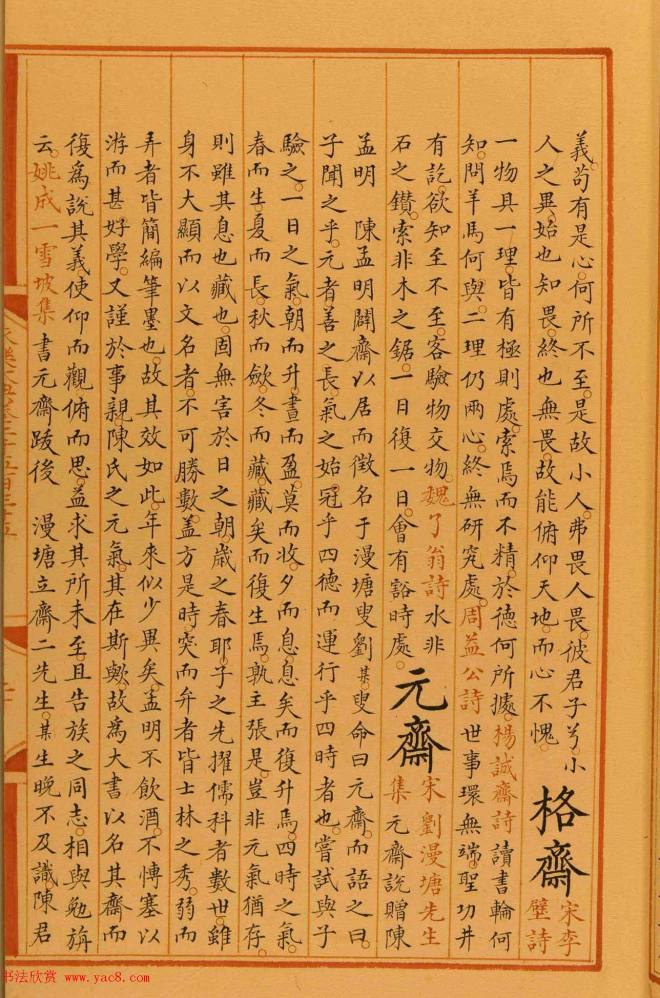 義。苟有是心。何所不至。是故小人。弗畏人畏。彼君子兮。小
人之異。始也知畏。終也無畏。故能俯仰天地。而心不愧。 格齋 宋李壁詩
一物具一理。皆有極則處。索焉而不精。於德何所據。楊誠齋詩讀書輪何
知。問羊馬何與。二理仍兩心。終無研究處。周益公詩 世事環無端。聖功井
有訖。欲知至不至。容驗物交物。魏了翁詩水非
石之鑽。索非木之鋸。一日復一日。會有豁時處。 元齋 宋劉漫塘先生集 元齋說贈陳
孟明 陳孟明闢齋以居而徵名于漫塘叟劉某叟命曰元齋。而語之曰。
子聞之乎。元者善之長。氣之始。冠乎四德而運行乎四時者也。嘗試與子
驗之。一日之氣。朝而升。晝而盈。莫而收。夕而息。息矣而復升焉。四時之氣。
春而生。夏而長。秋而斂。冬而藏。藏矣而復生焉。孰主張是。豈非元氣猶存。
則雖其息也藏也。固無害於日之朝。歲之春耶。子之先擢儒科者數世。雖
身不大顯而以文名者。不可勝數。蓋方是時。突而弁者皆士林之秀。弱而
弄者皆簡編筆墨也。故其效如此。年來似少異矣。孟明不飲酒。不博塞以
游而甚好學。又謹於事親。陳氏之元氣。其在斯歟。故為大書以名其齋而
復為說其義使仰而觀俯而思。益求其所未至。且告族之同志。相與勉旃
云。姚成一雪坡集 書元齋跋後 漫塘立齋二先生。某生晚不及識。陳君
书法欣赏 www.yac8.com